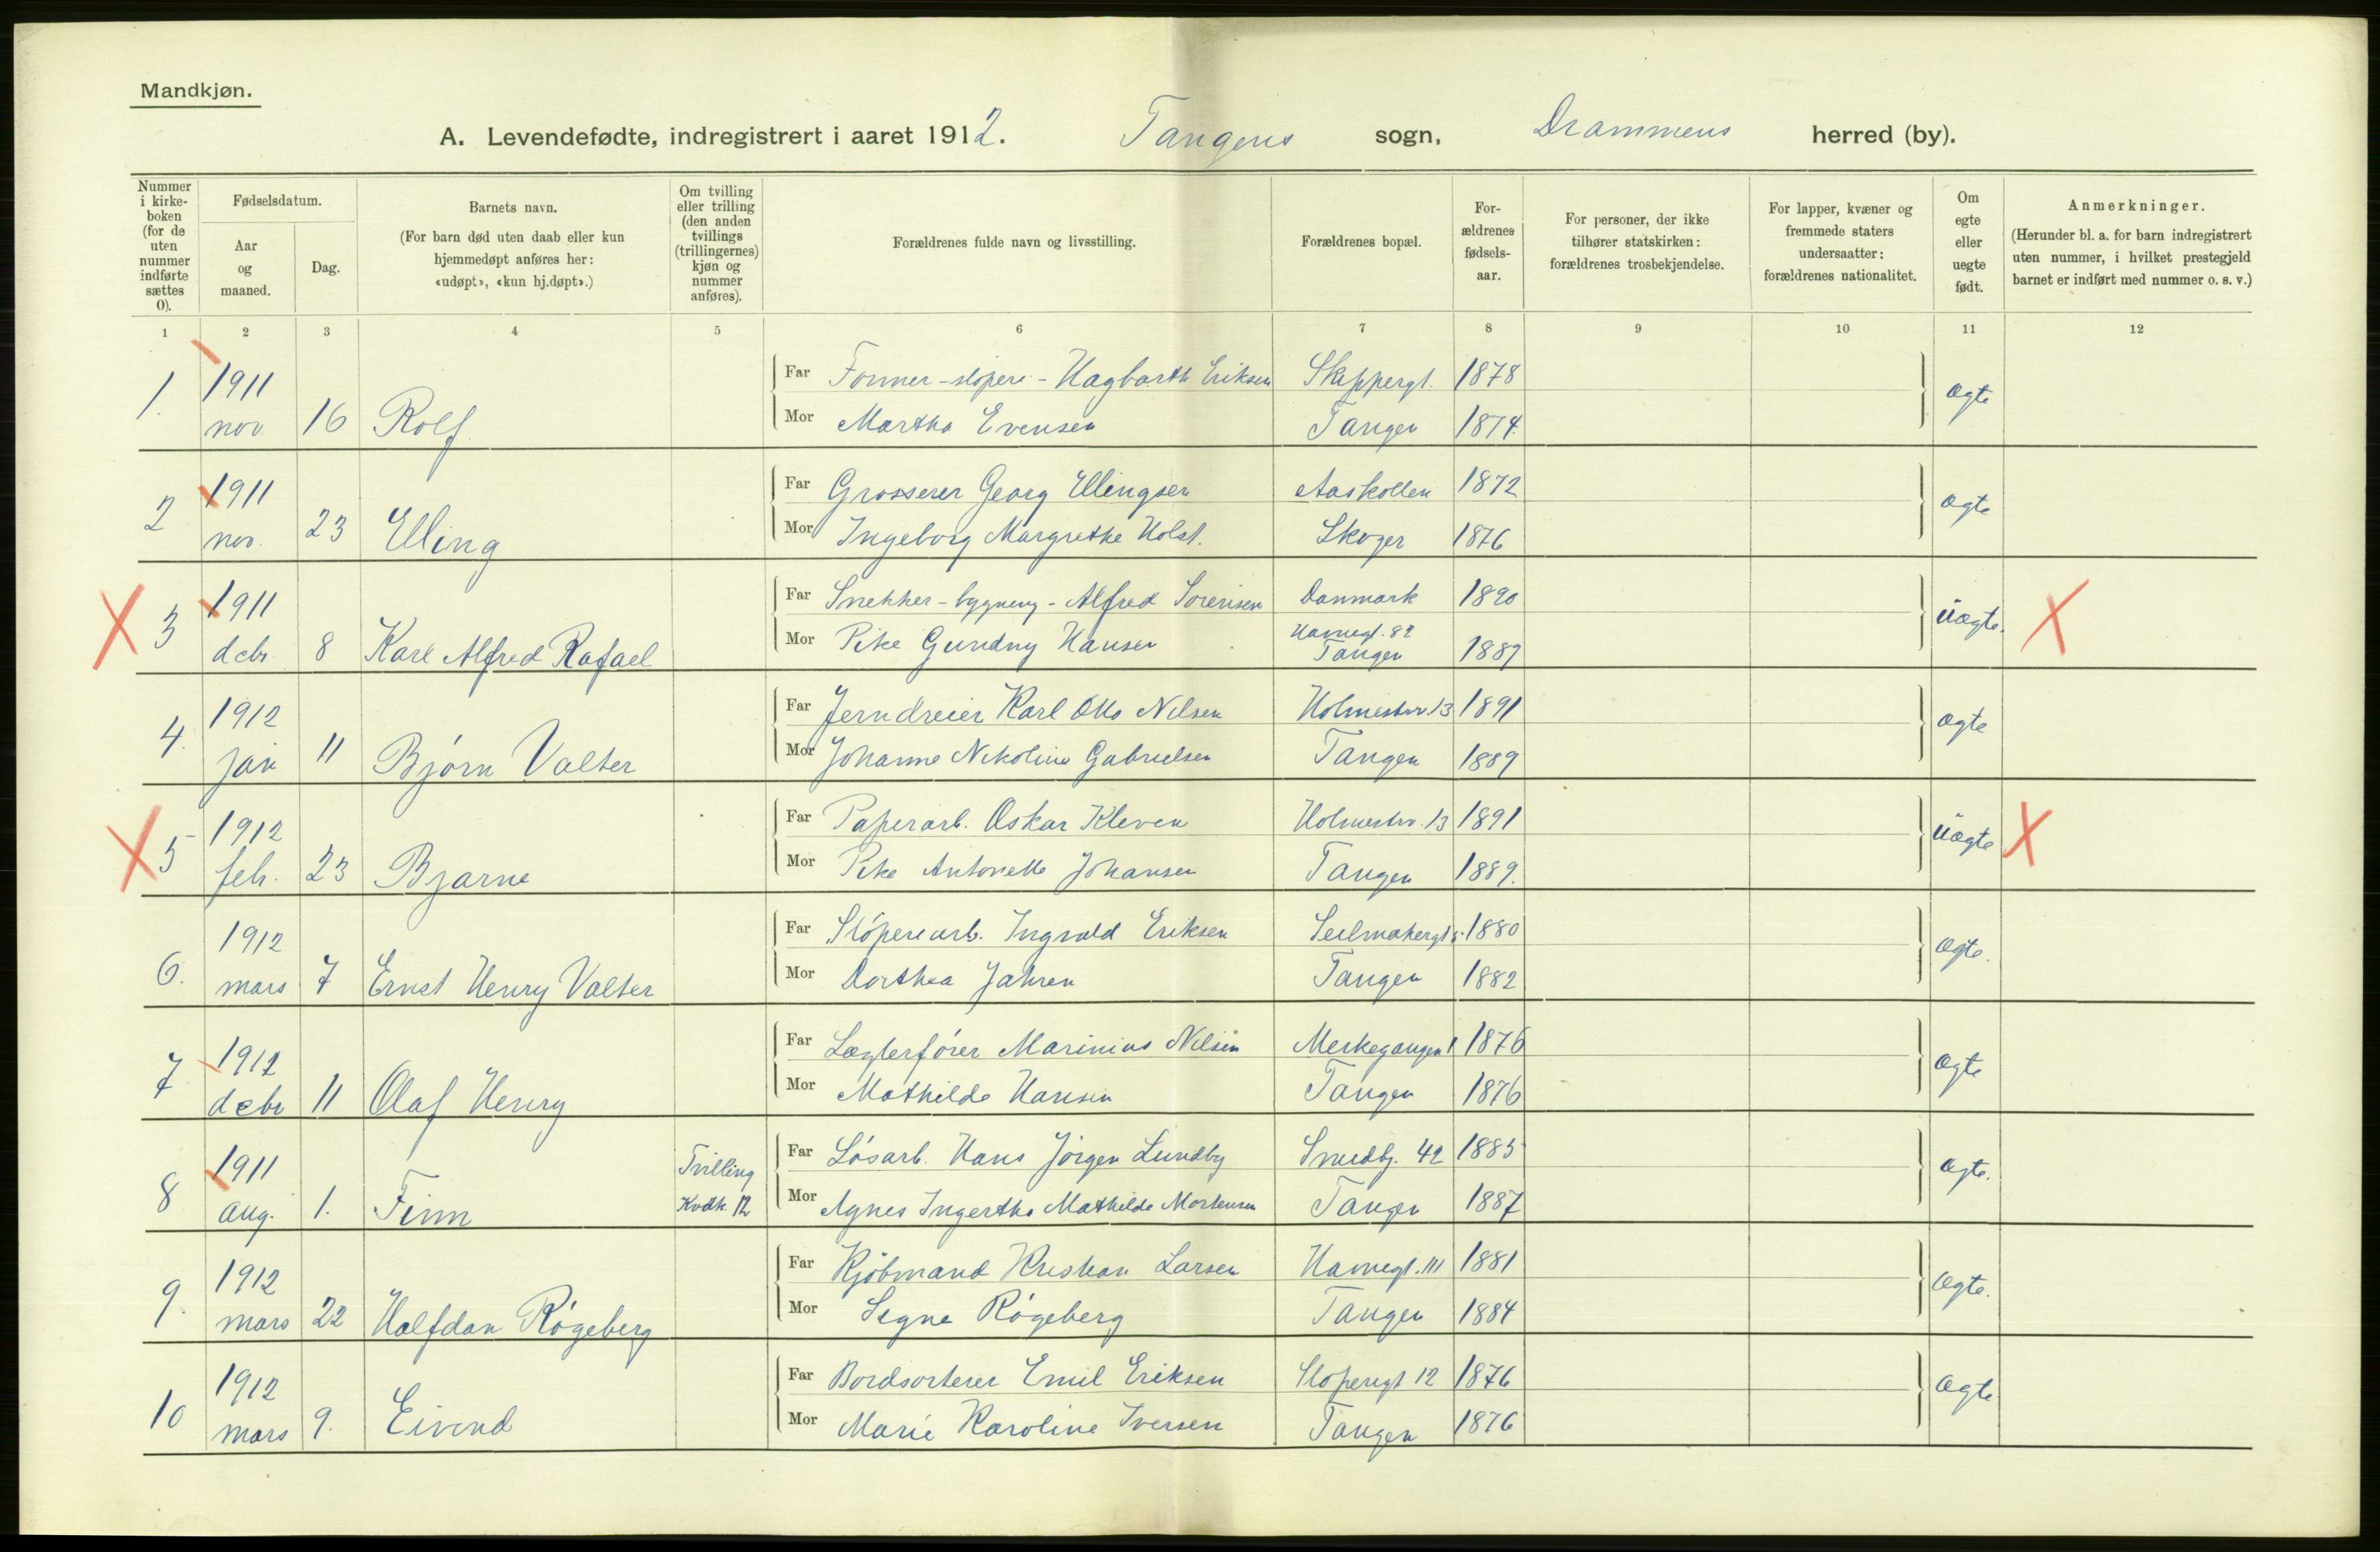 Mandkjøn.
A. Levendefødte, indregistrert i aaret 1912. Tangens sogn, Drammens herred (by).
Nummer i kirke-boken (for de uten nummer indførte sættes 0).
Fødselsdatum.
Aar og maaned.
Dag.
Barnets navn.
(For barn død uten daab eller kun hjemmedøpt anføres her: «udøpt», «kun hj.døpt».)
Om tvilling eller trilling (den anden tvillings (trillingernes) kjøn og nummer anføres).
Forældrenes fulde navn og livsstilling.
Forældrenes bopæl.
For-ældrenes fødsels-aar.
For personer, der ikke tilhører statskirken: forældrenes trosbekjendelse.
For lapper, kvæner og fremmede staters undersaatter: forældrenes nationalitet.
Om egte eller uegte født.
Anmerkninger.
(Herunder bl. a. for barn indregistrert uten nummer, i hvilket prestegjeld barnet er indført med nummer o. s. v.)
1 2 3 4 5 6 7 8 9 10 11 12
1. 1911 nov. 16 Rolf
Far Former-støperi- Hagbarth Eriksen Skippergt. 1878 ægte
Mor Martha Evensen Tangen 1874.
2 1911 nov. 23 Elling
Far Grosserer Georg Ellingsen Aaskollen 1872 ægte
Mor Ingeborg Margrethe Holst. Skoger 1876
3 1911 debr. 8 Karl Alfred Rafael
Far Snekker-bygning- Alfred Sørensen Danmark 1890 uægte.
Mor Pike Gundny Hansen Havnegt. 82 Tangen 1889
4. 1912 jan 11 Bjørn Valter
Far Jerndreier Karl Otto Nilsen Holmestrv. 13 1891 ægte
Mor Johanne Nikoline Gabrielsen Tangen 1889
5 1912 feb. 23 Bjarne
Far Papirarb. Oskar Kleven Holmestrv. 13 1891 uægte
Mor Pike Antonette Johansen Tangen 1889.
6. 1912 mars 7 Ernst Henry Valter
Far Støperiarb. Ingvald Eriksen Seilmakergt 5. 1880 ægte.
Mor Dorthea Jahren Tangen 1882
7 1912 debr 11 Olaf Henry
Far Lægterfører Marinius Nilsen Merkegangen 1 1876 ægte
Mor Mathilde Hansen Tangen 1876
8 1911 aug. 1. Finn Tvilling Kvdk. 12
Far Løsarb. Hans Jørgen Lundby Smedbj. 42 1885 ægte.
Mor Agnes Ingertha Mathilde Mortensen Tangen 1887
9. 1912 mars 22 Halfdan Røgeberg
Far Kjøbmand Kristian Larsen Havnegt. 111 1881 ægte.
Mor Signe Røgeberg Tangen 1884
10 1912 mars 9. Eivind
Far Bordsorterer Emil Eriksen Støperigt 12 1876 ægte
Mor Marie Karoline Iversen Tangen 1876